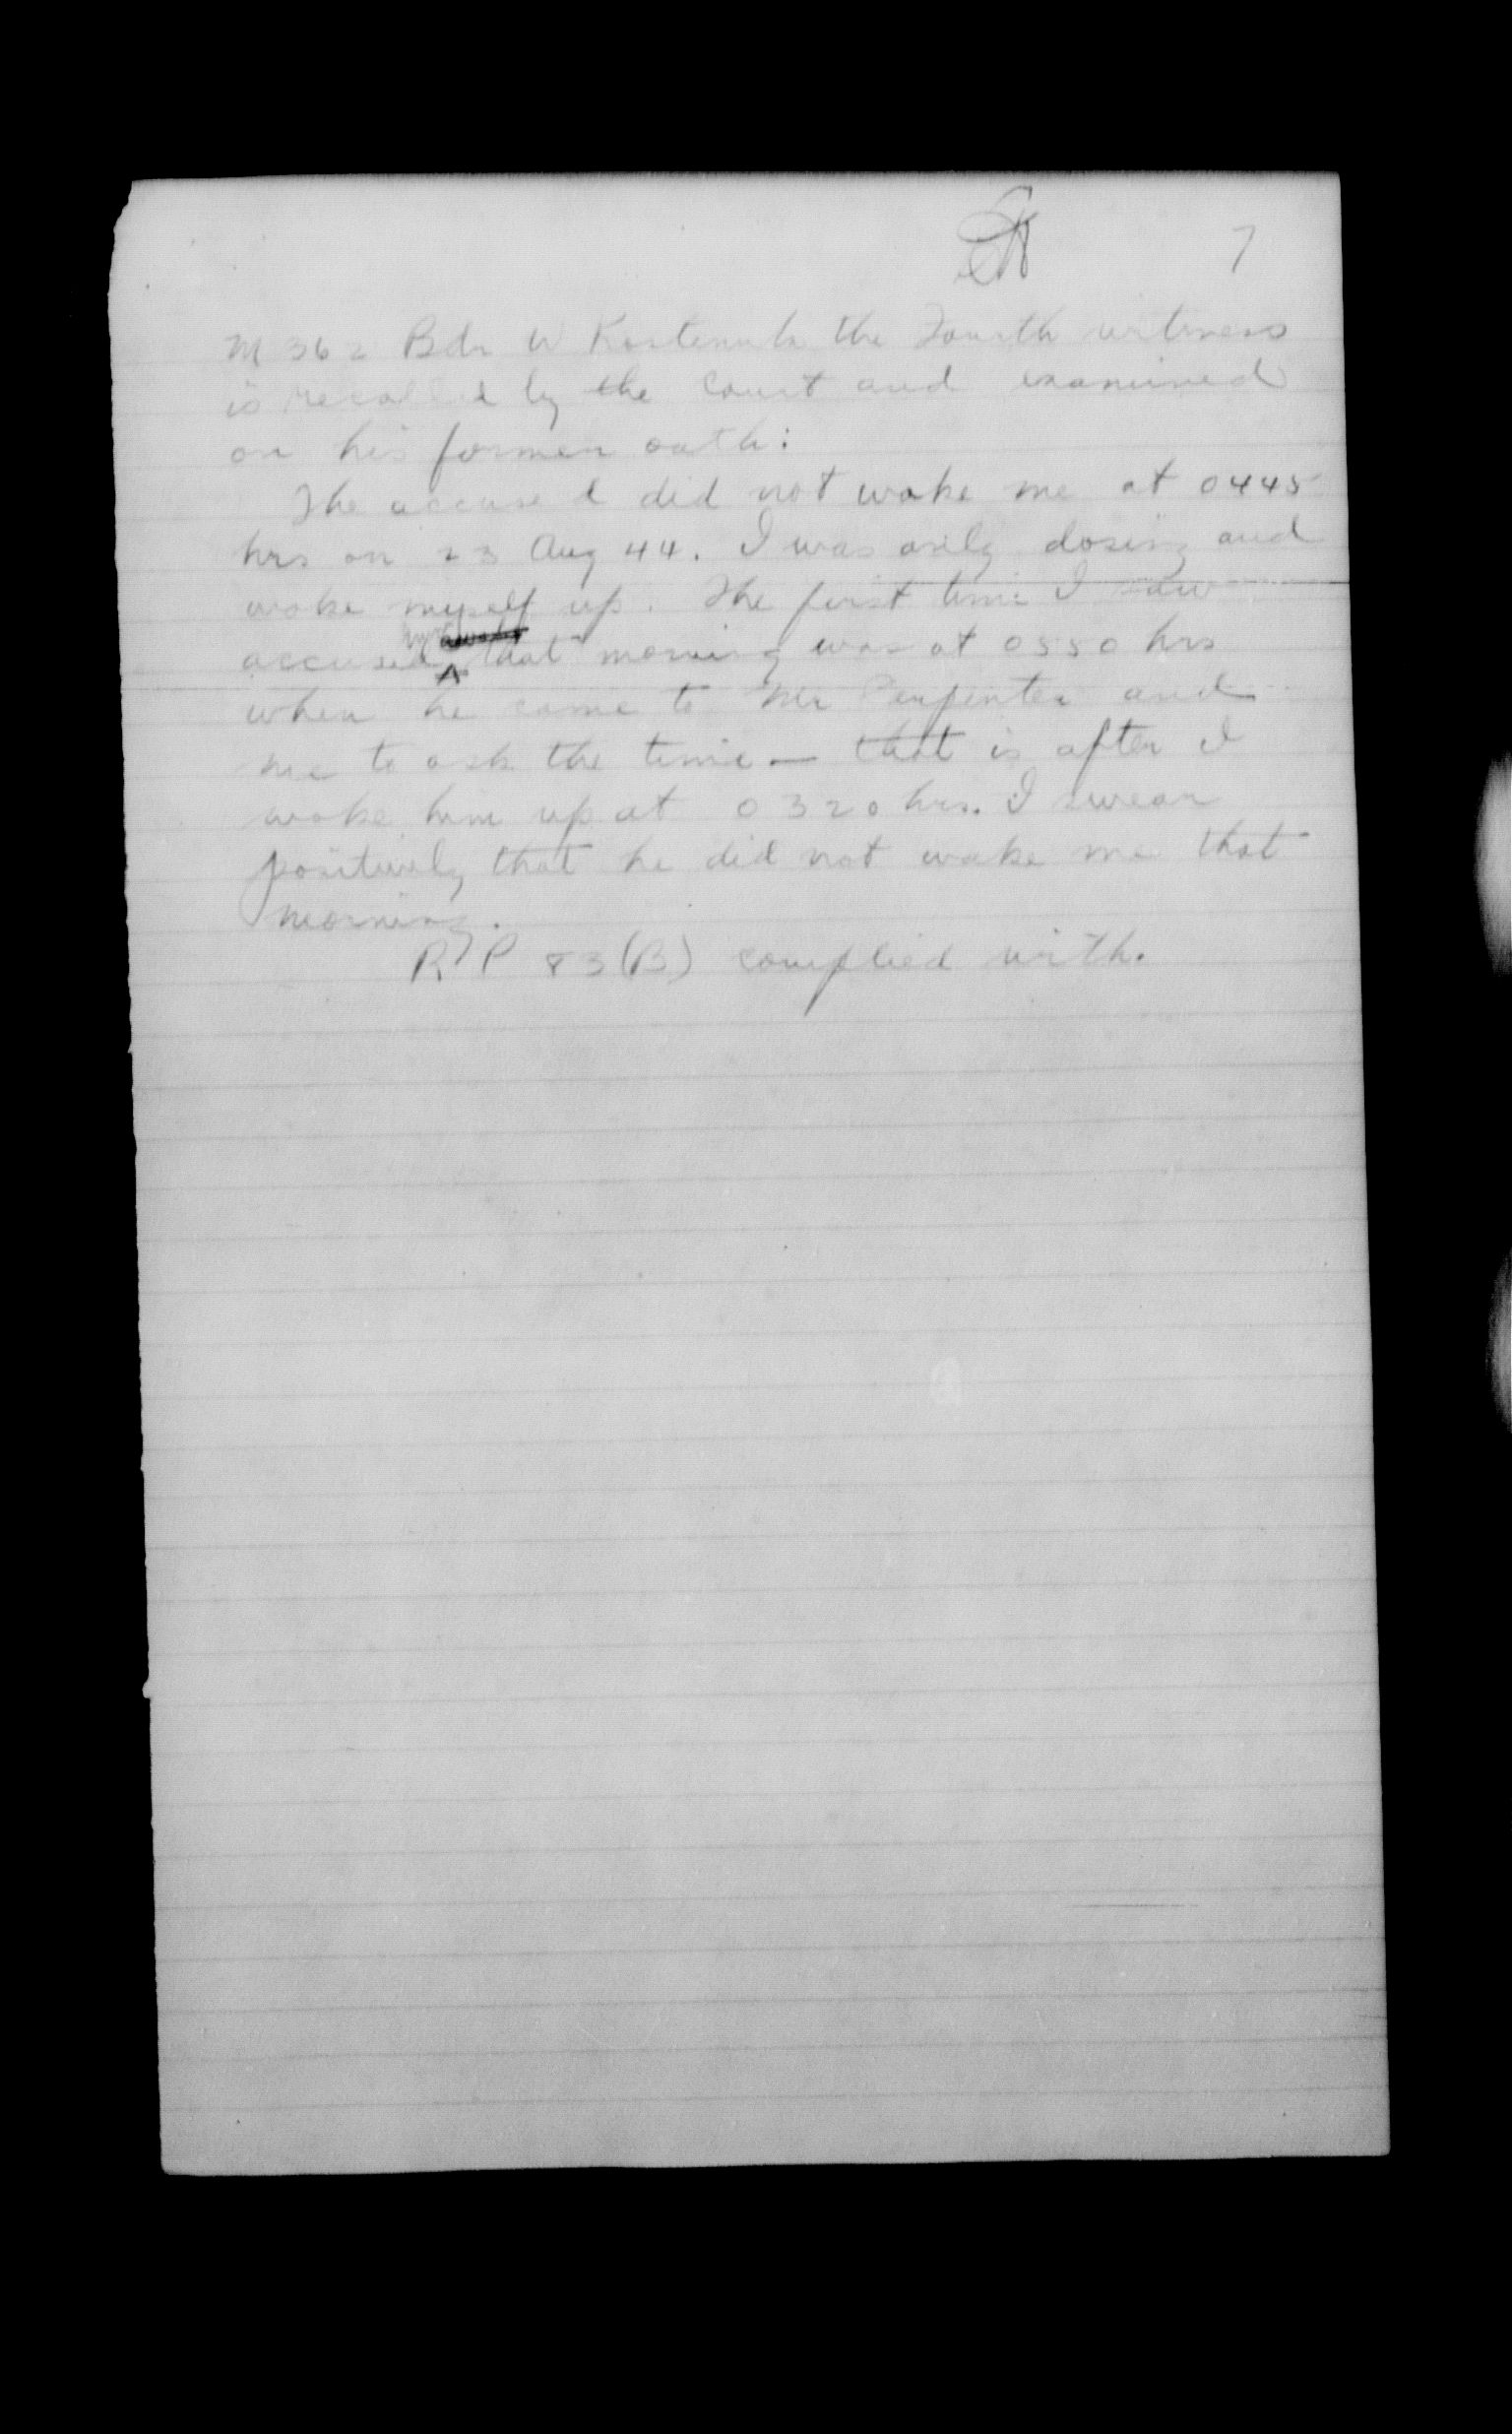 7
M 362 Bdr W the Fourth witness
is recalled by the Court and examined
on his former oath:
The accused did not wake me at 0445
hrs on 23 Aug 44. I was only dosing and
woke myself up. The first time I saw
accused that morning was at 0550 hrs
when he came to Mr Carpenter and
me to ask the time — that is after I
woke him up at 0320 hrs. I swear
positively that he did not wake me that
morning.
R P 83(B) complied with.